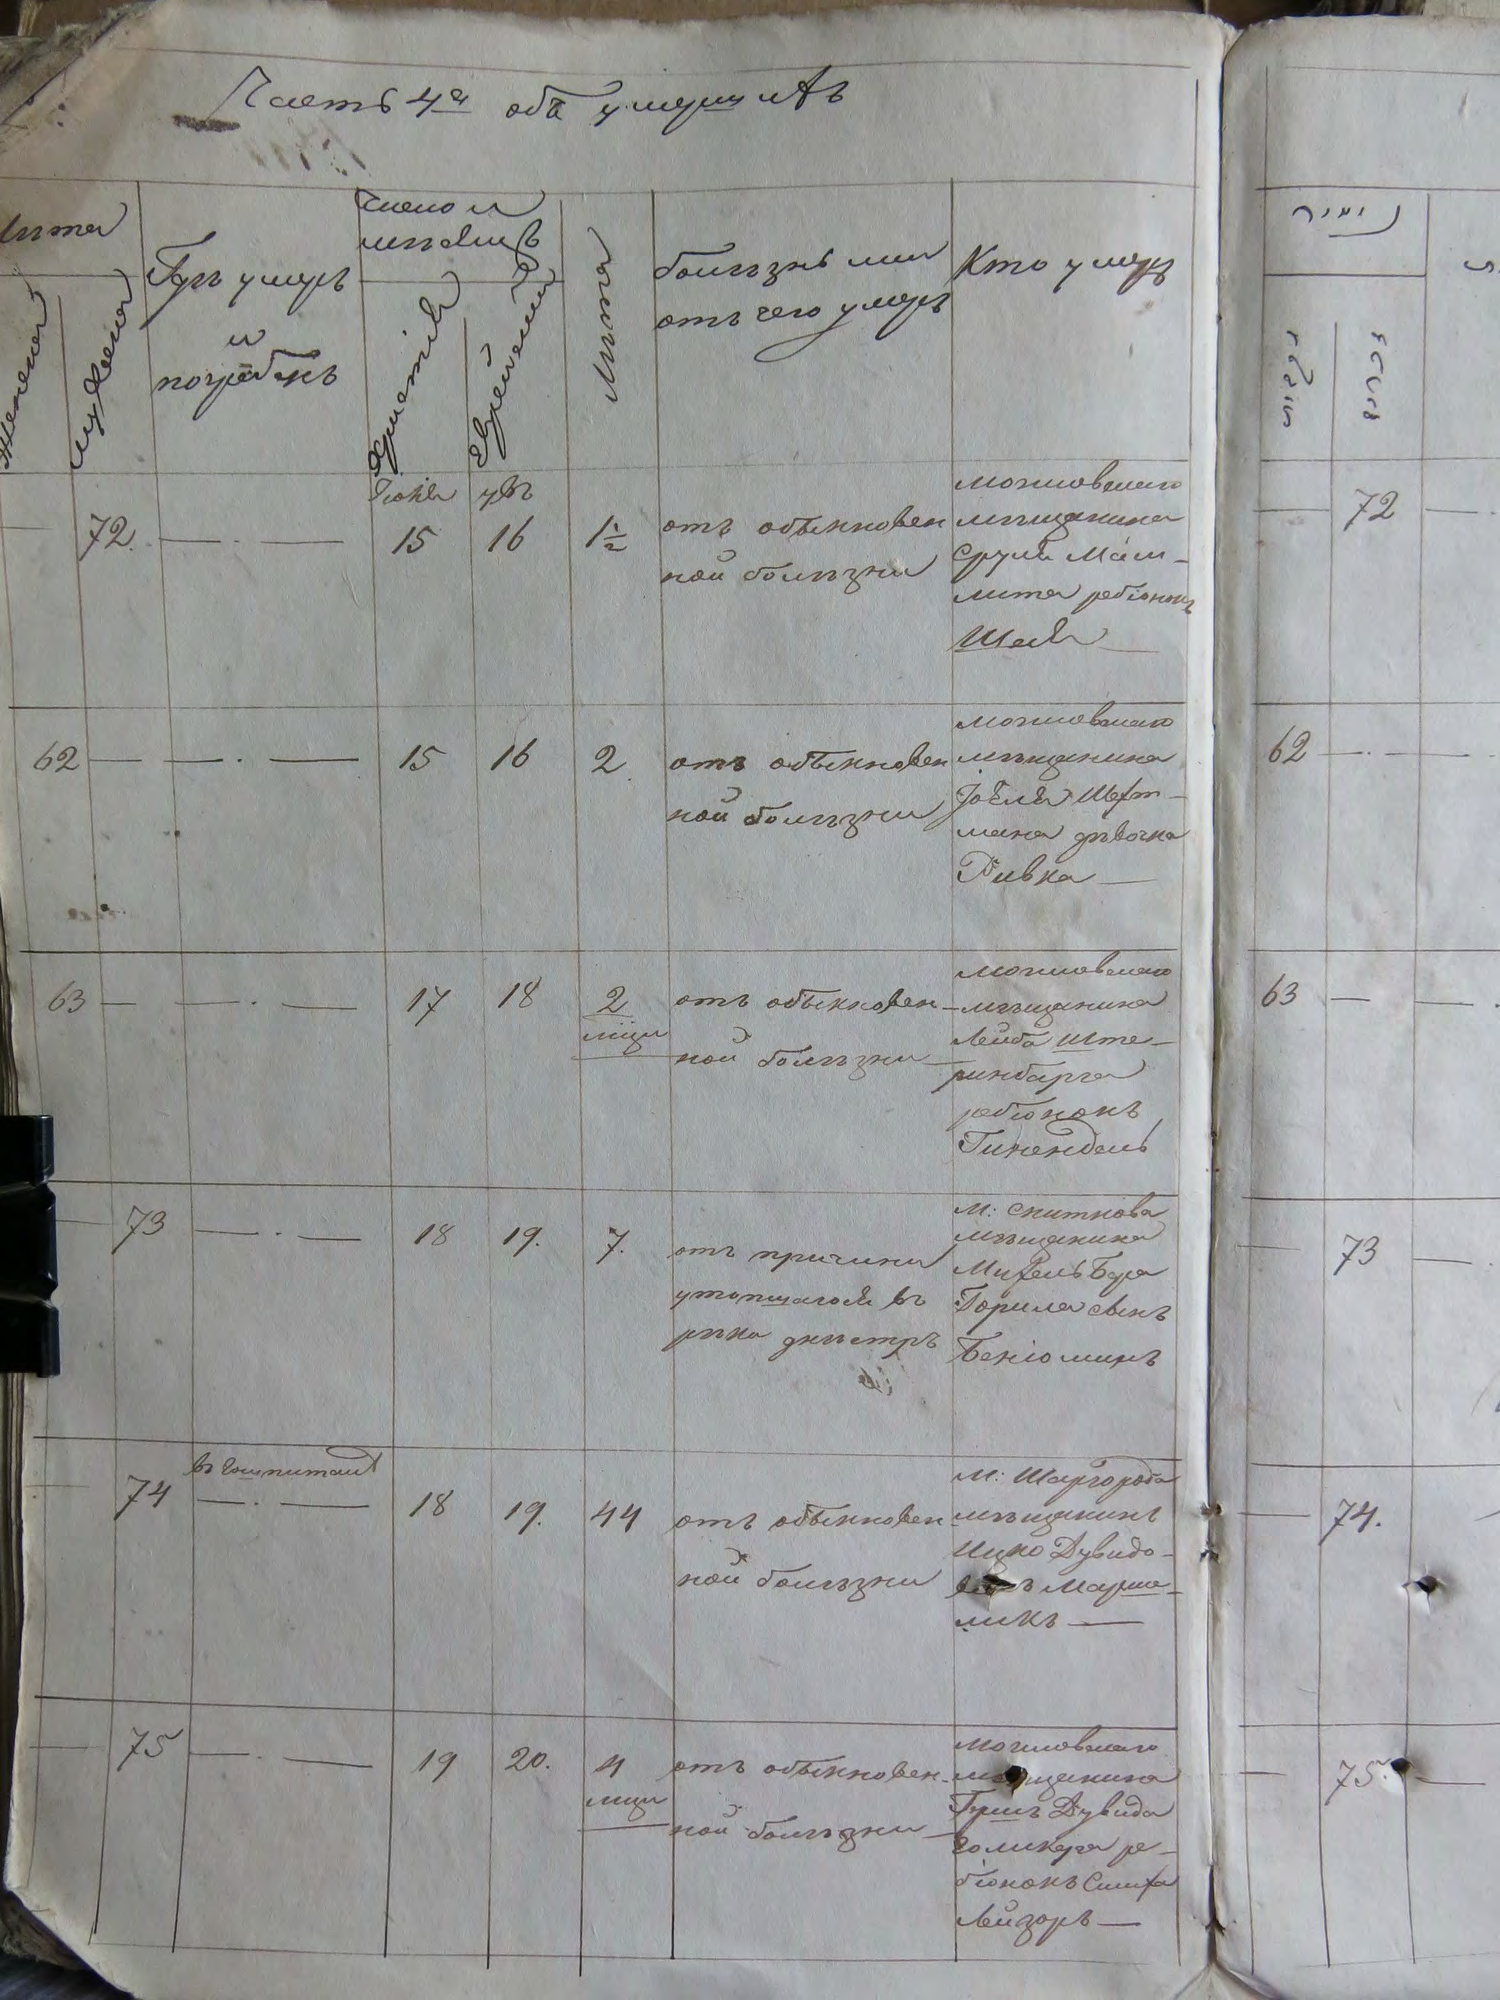 Часть 4я объ умершихъ
Лѣта
Женска
Мужеска
Гдѣ умеръ
и
погребенъ
Число и
мѣсяцъ
Христіа
Еврейскій
Лѣта
Болѣзнь или
отъ чего умеръ
Кто умеръ
Іюня увъ
— 72. — . — 15 16 1½
отъ обыкновен
ной болѣзни
могилевскаго
мѣщанина
Сруля
лита ребіонокъ
Шая —
62 — — . — 15 16 2
отъ обыкновен
ной болѣзни
могилевскаго
мѣщанина
Іоеля Шехт-
мана дѣвочка
Ривка —
63 — — . — 17 18 2
мци
отъ обыкновен-
ной болѣзни —
могилевскаго
мѣщанина
Лейба Ште-
ринбарга
ребіонокъ
Гинендель
— 73 — . — 18 19. 7.
отъ причини
утопшагося въ
рѣка днѣстръ
М: Сниткова
мѣщанина
Михель Бера
Горила сынъ
Беніоминъ
— 74 въ Гошпитали
— . — 18 19. 44
отъ обыкновен
ной болѣзни
М: Шаргорода
мѣщанинъ
Ицко Дувидо-
вичъ Марше-
ликъ —
— 75 — . — 19 20. 4
мци
отъ обыкновен-
ной болѣзни —
могилевскаго
мѣщанина
Гершъ Дувида
ре-
біонокъ Симха
Лейзоръ —
72
62
63
73
74.
75.